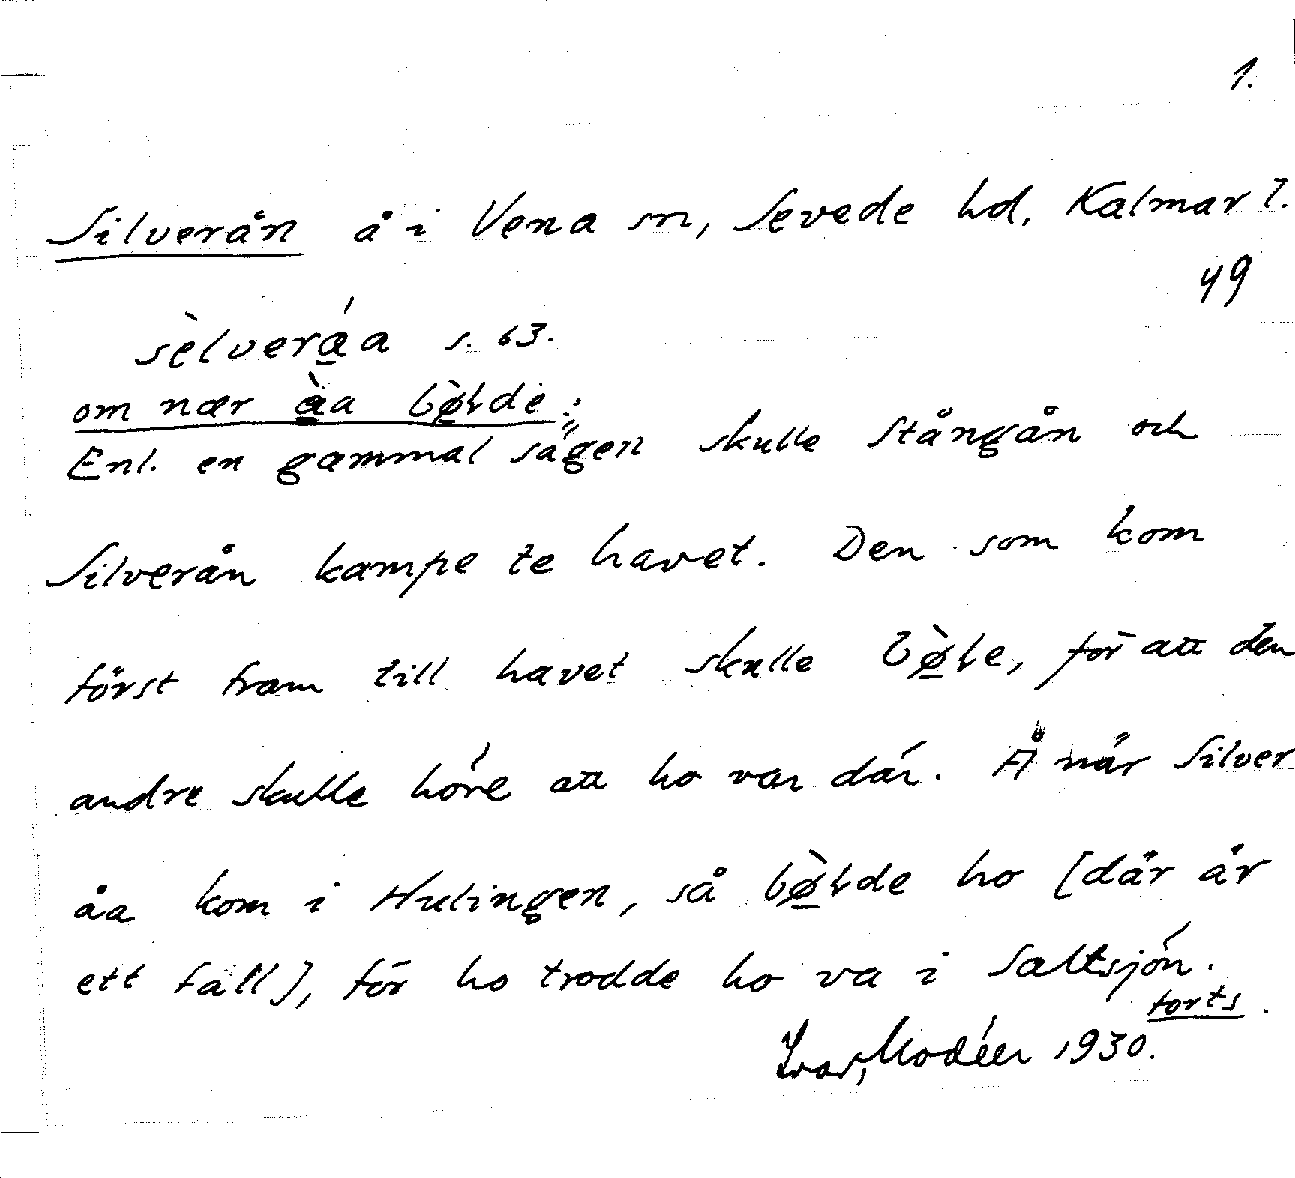 1.
Silverån å i Vena sn, Sevede hd, Kalmar l.
49
sèlveráa s. 63.
om nær àa bø̀lde:
Enl. en gammal sägen skulle Stångån och
Silverån kampe te havet. Den som kom
först fram till havet skulle bø̀le, för att den
andre skulle höre att ho var där. Å når Silver
åa kom i Hulingen, så bø̀lde ho [där är
ett fall], för ho trodde ho va i Saltsjön.
forts.
Ivar Modéer 1930.